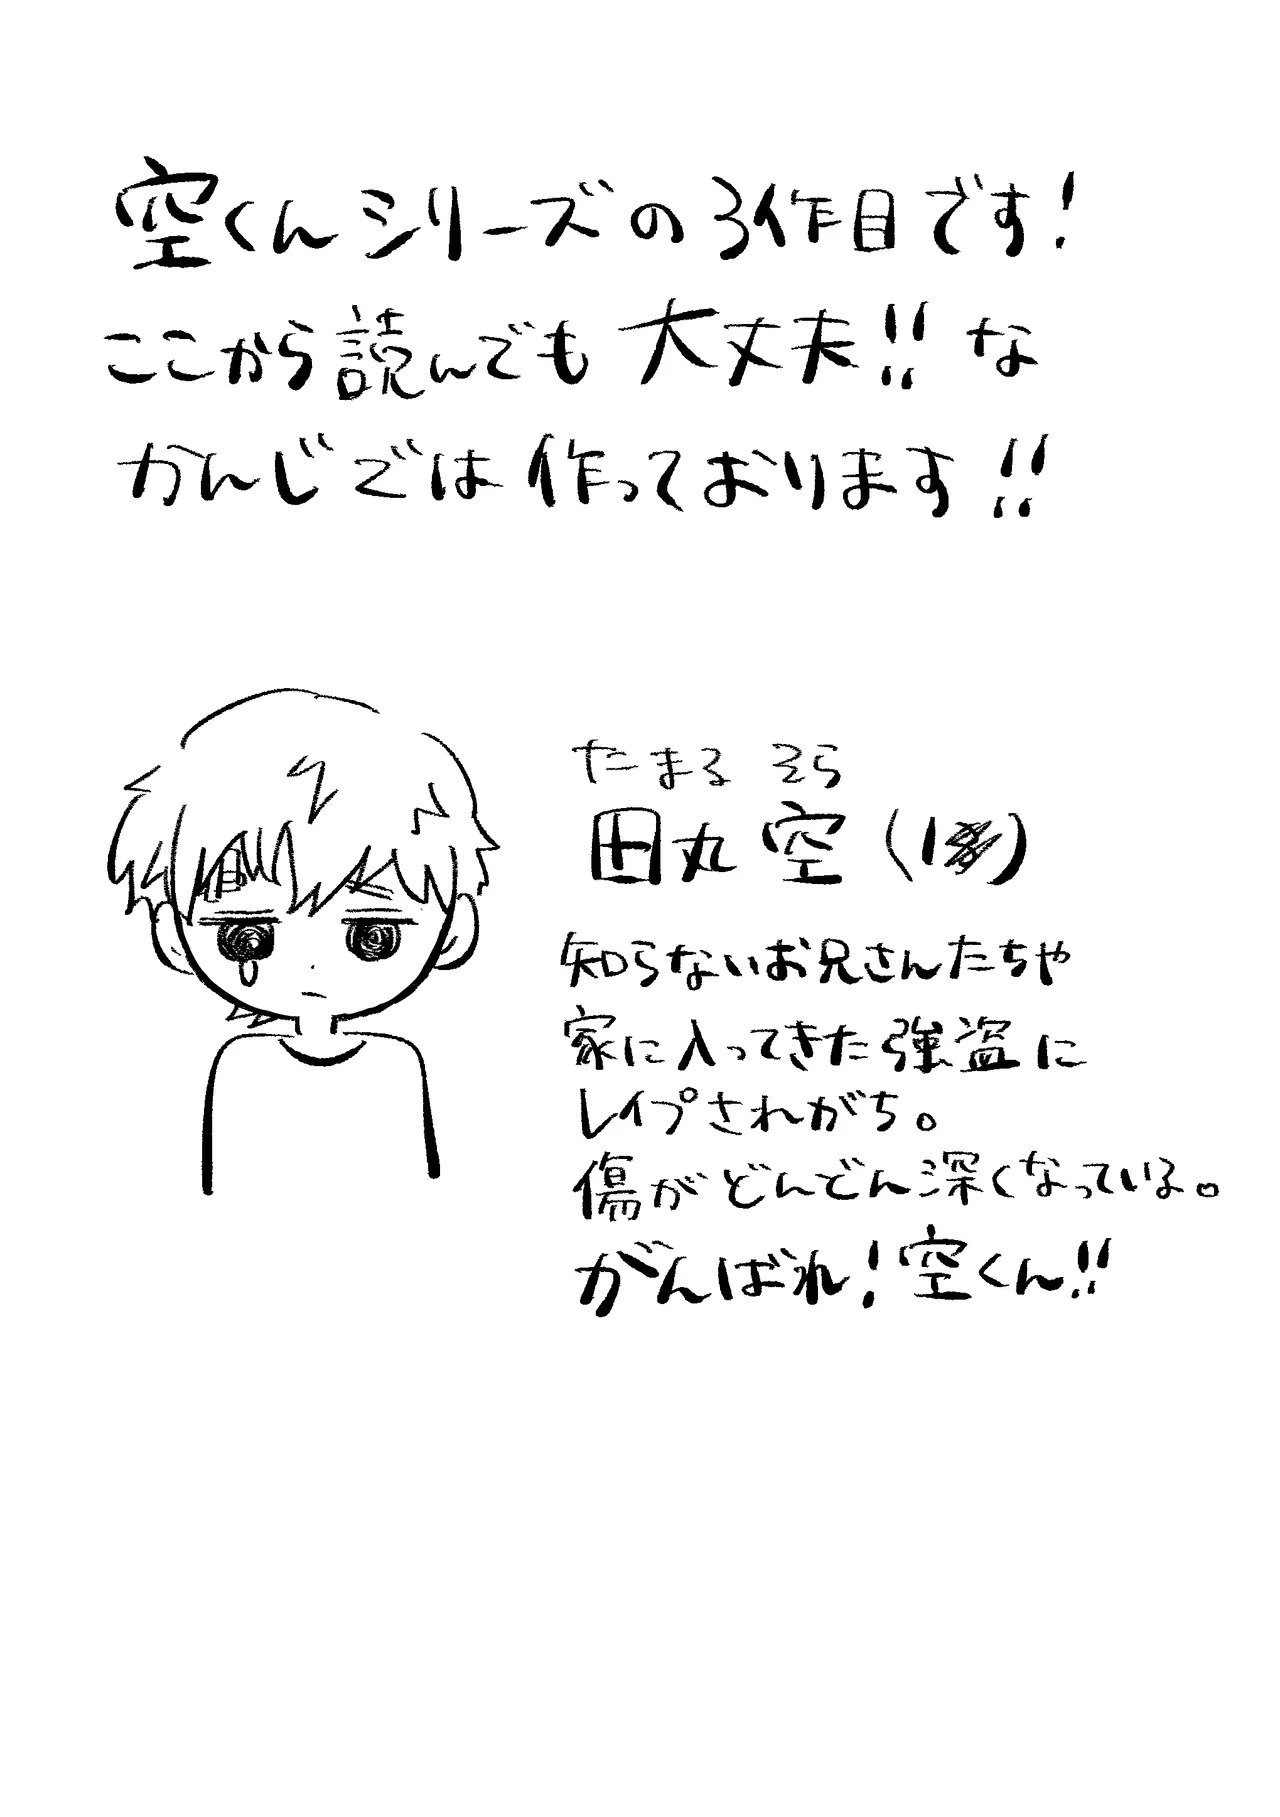 空くんシリーズの3作目です!
ここから読んでも大丈夫!!な
かんじでは作っております!!
たまる そら
田丸 空 (1 )
知らないお兄さんたちや
家に入ってきた強盗に
レイプされがち。
傷がどんどん深くなっている。
がんばれ!空くん!!